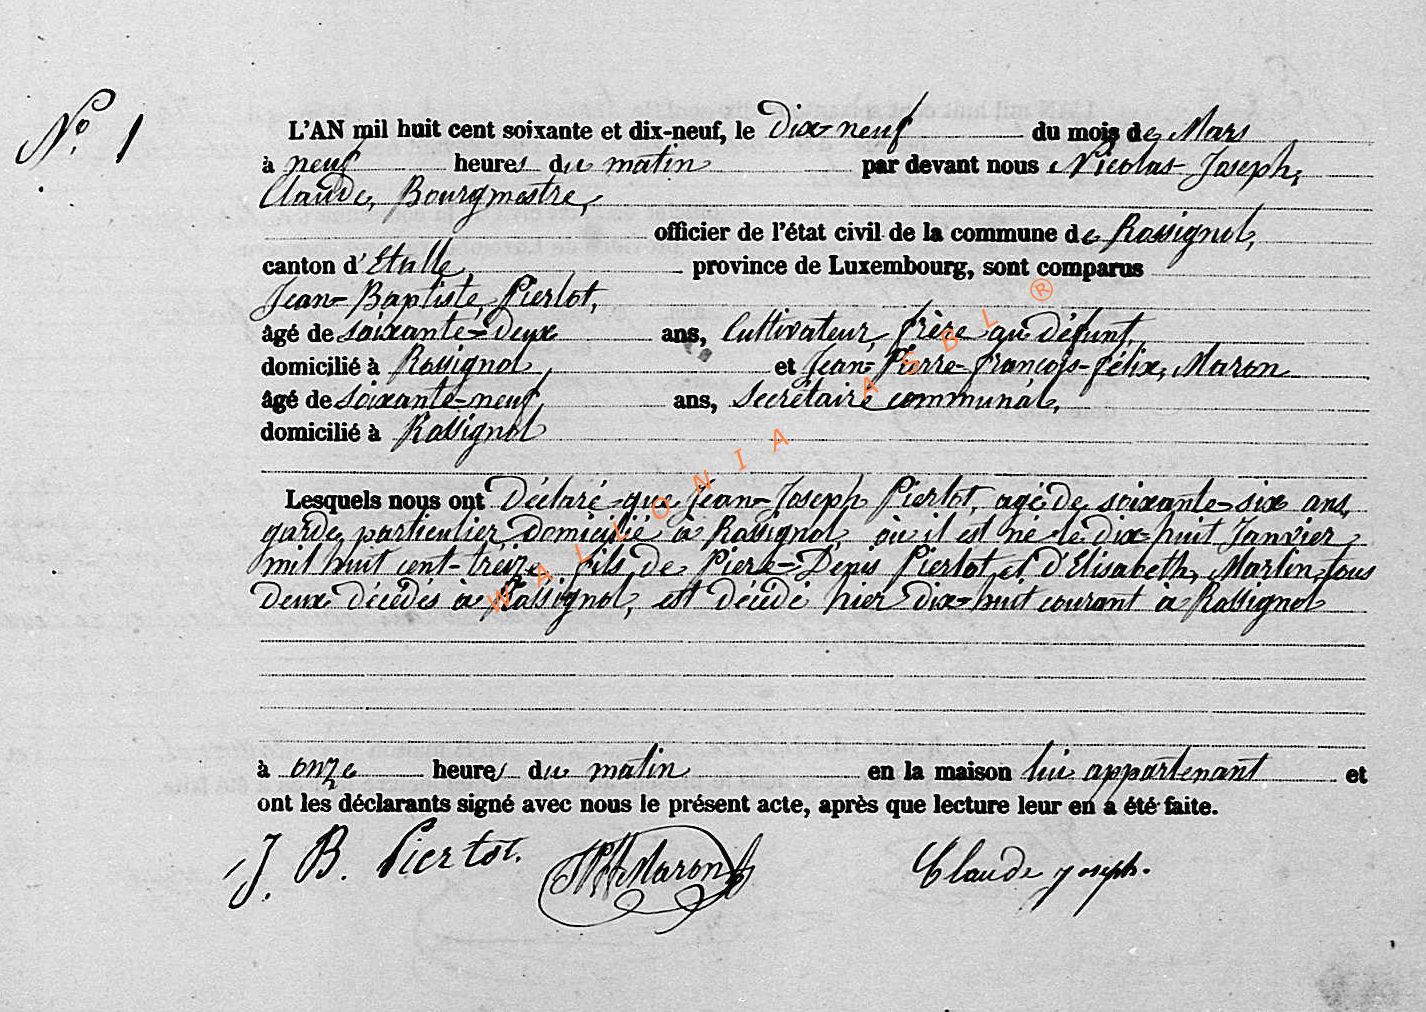 N° 1
L'AN mil huit cent soixante et dix-neuf, le Dix-neuf du mois de Mars
à neuf heures du matin par devant nous Nicolas-Joseph,
Claude, Bourgmestre,
officier de l'état civil de la commune de Rossignol,
canton d'Etalle, province de Luxembourg, sont comparus
Jean-Baptiste, Pierlot,
âgé de soixante-deux ans, Cultivateur, frère au défunt,
domicilié à Rossignol, et Jean-Pierre-François-félix, Maron
âgé de soixante-neuf, ans, Secrétaire communal,
domicilié à Rossignol
Lesquels nous ont Déclaré que Jean-Joseph Pierlot, agé de soixante-six ans,
garde particulier Domicilié à Rossignol, où il est né le dix-huit Janvier
mil huit cent-treize, fils de Piere-Denis Pierlot et d'Elisabeth, Marlin, tous
deux décédés à Rossignol, est décédé hier dix-huit courant à Rossignol
à onze heures du matin en la maison lui appartenant et
ont les déclarants signé avec nous le présent acte, après que lecture leur en a été faite.
J. B. Pierlot. Maron Claude Joseph.
WALLONIA ASBL ®